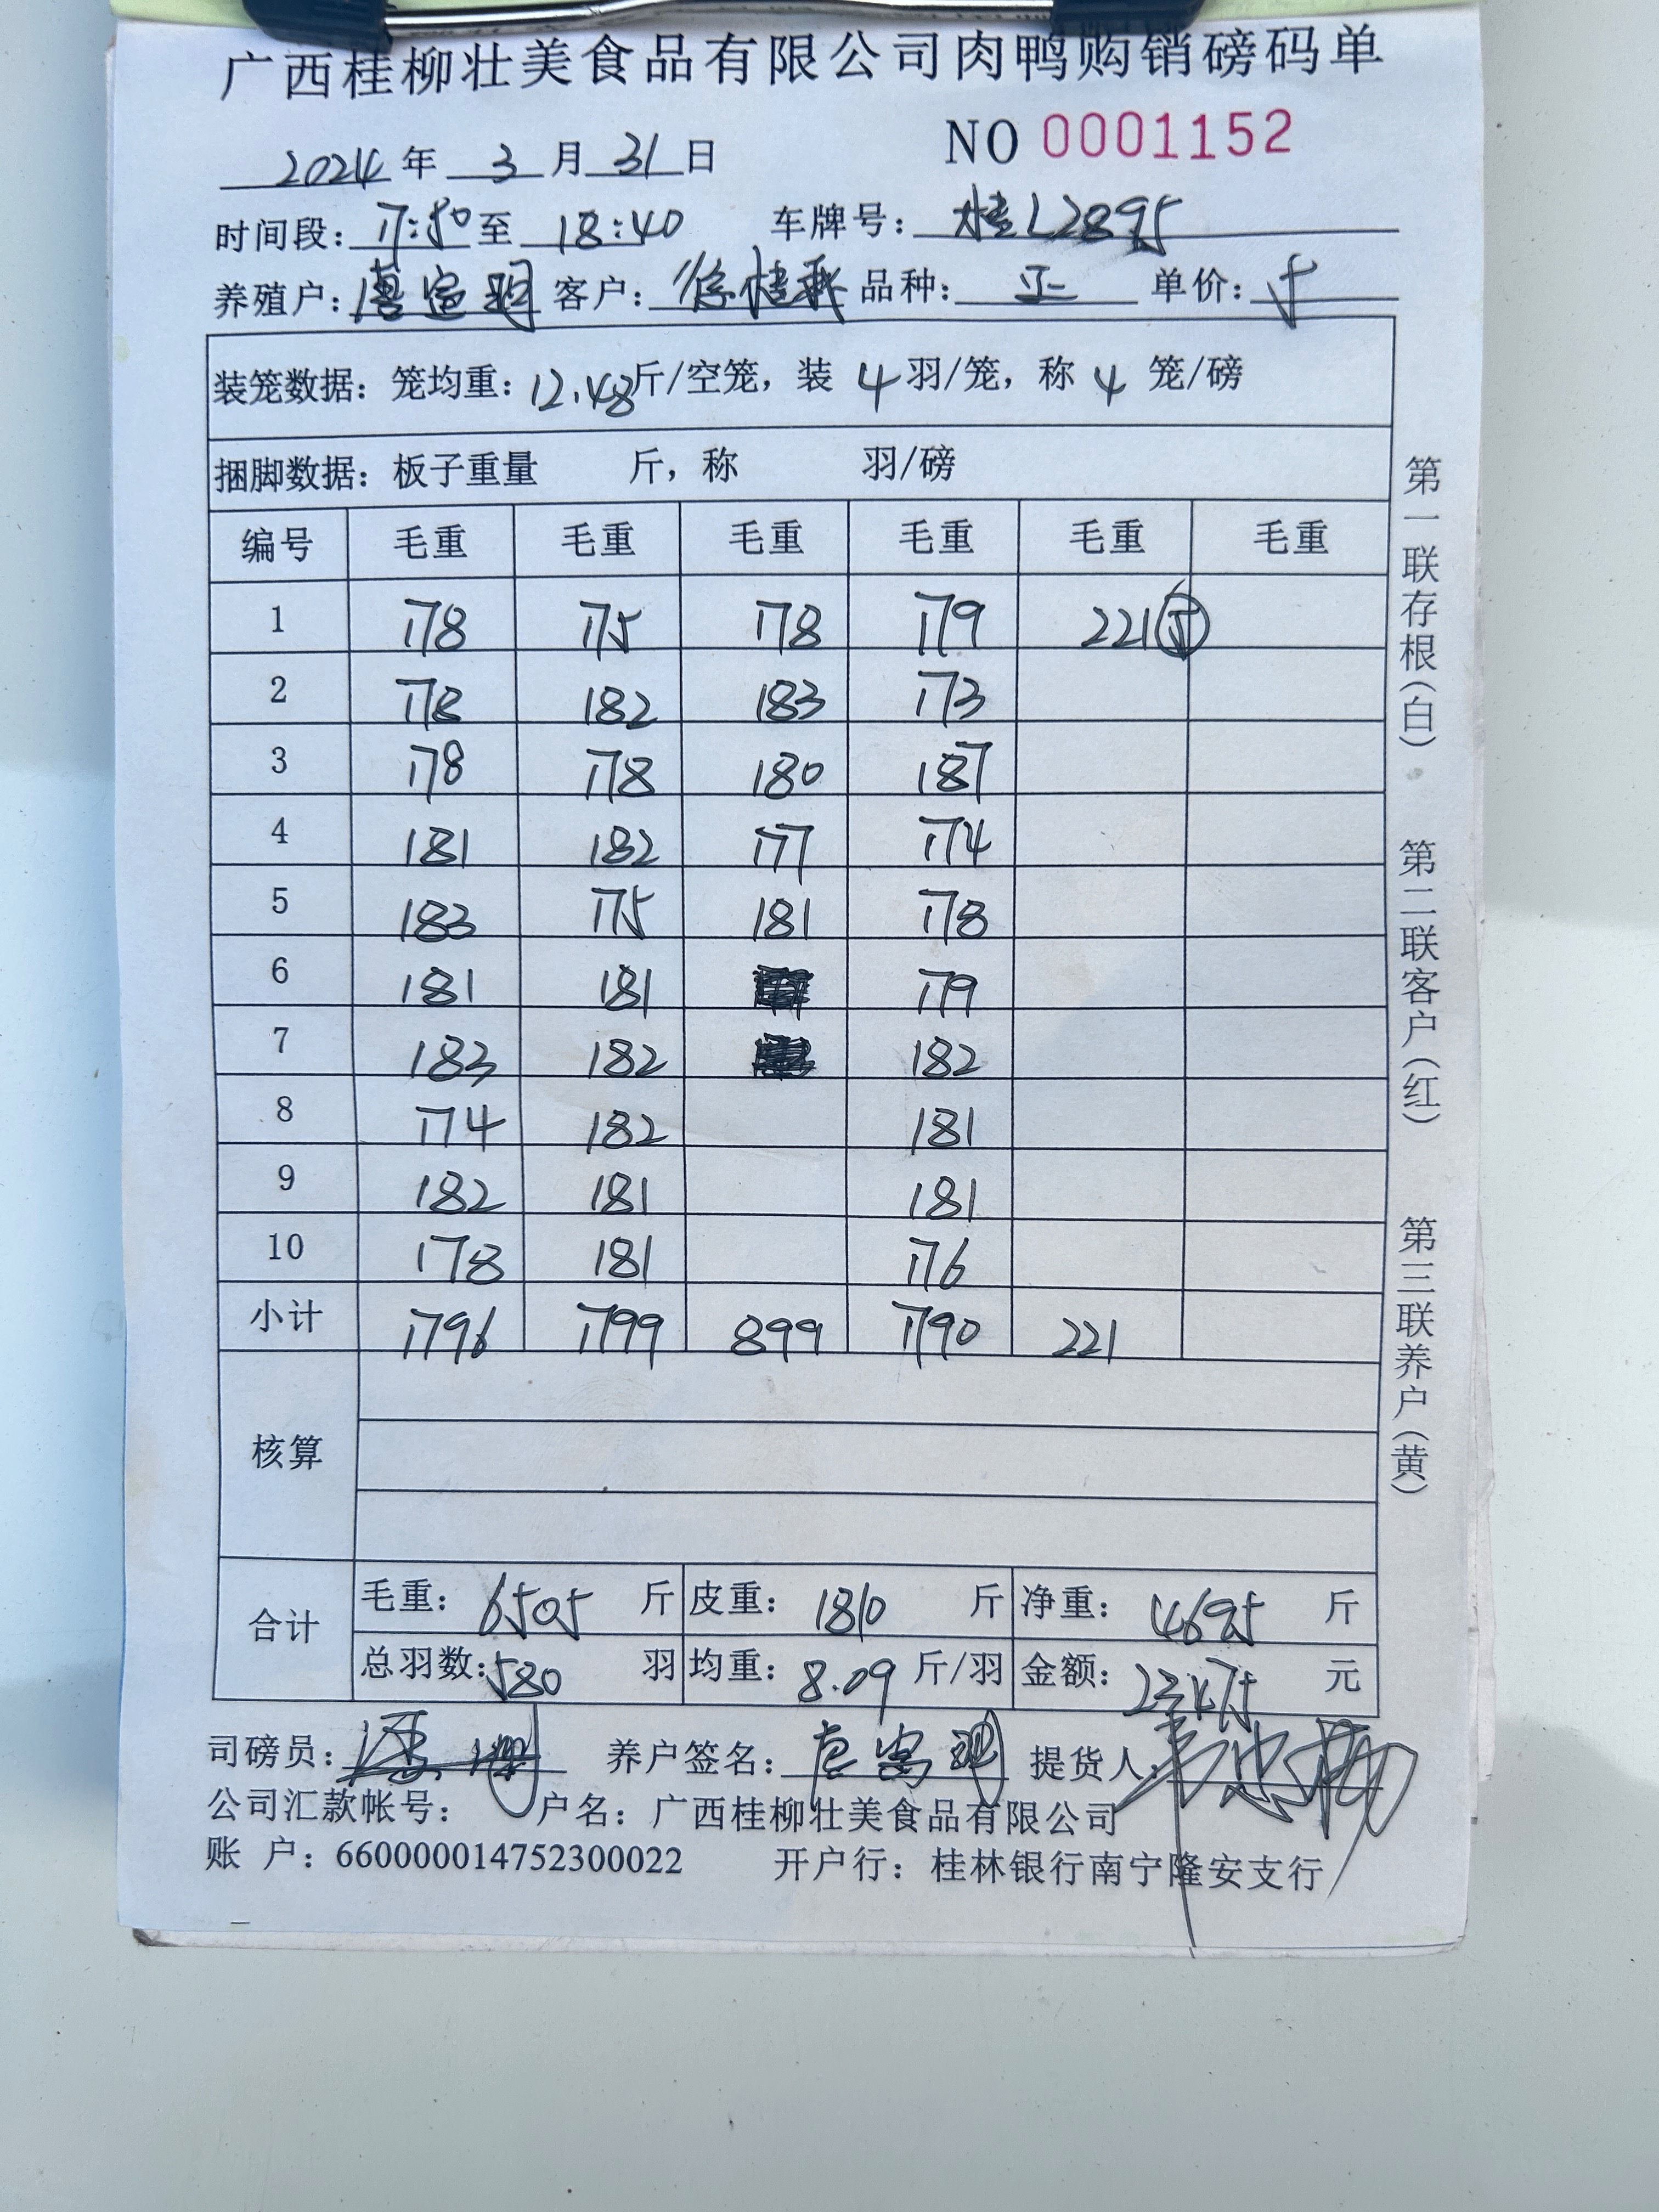 广西桂柳壮美食品有限公司肉鸭购销磅码单
NO 0001152
2024 年 3 月 31 日
时间段: 17:50 至 18:40 车牌号: 桂L2895
养殖户: 客户: 徐桂 品种: 正 单价: 5
装笼数据: 笼均重: 12.48 斤/空笼, 装 4 羽/笼, 称 4 笼/磅
捆脚数据: 板子重量 斤, 称 羽/磅
编号 毛重 毛重 毛重 毛重 毛重 毛重
1 178 175 178 179 221⑤
2 178 182 183 173
3 178 178 180 187
4 181 182 177 174
5 183 175 181 178
6 181 181 179
7 183 182 182
8 174 182 181
9 182 181 181
10 178 181 176
小计 1796 1799 899 1790 221
核算
合计 毛重: 6505 斤 皮重: 1810 斤 净重: 4695 斤
总羽数: 580 羽 均重: 8.09 斤/羽 金额: 23475 元
司磅员: 养户签名: 提货人:
公司汇款帐号: 户名: 广西桂柳壮美食品有限公司
账 户: 660000014752300022 开户行: 桂林银行南宁隆安支行
第一联存根(白)
第二联客户(红)
第三联养户(黄)